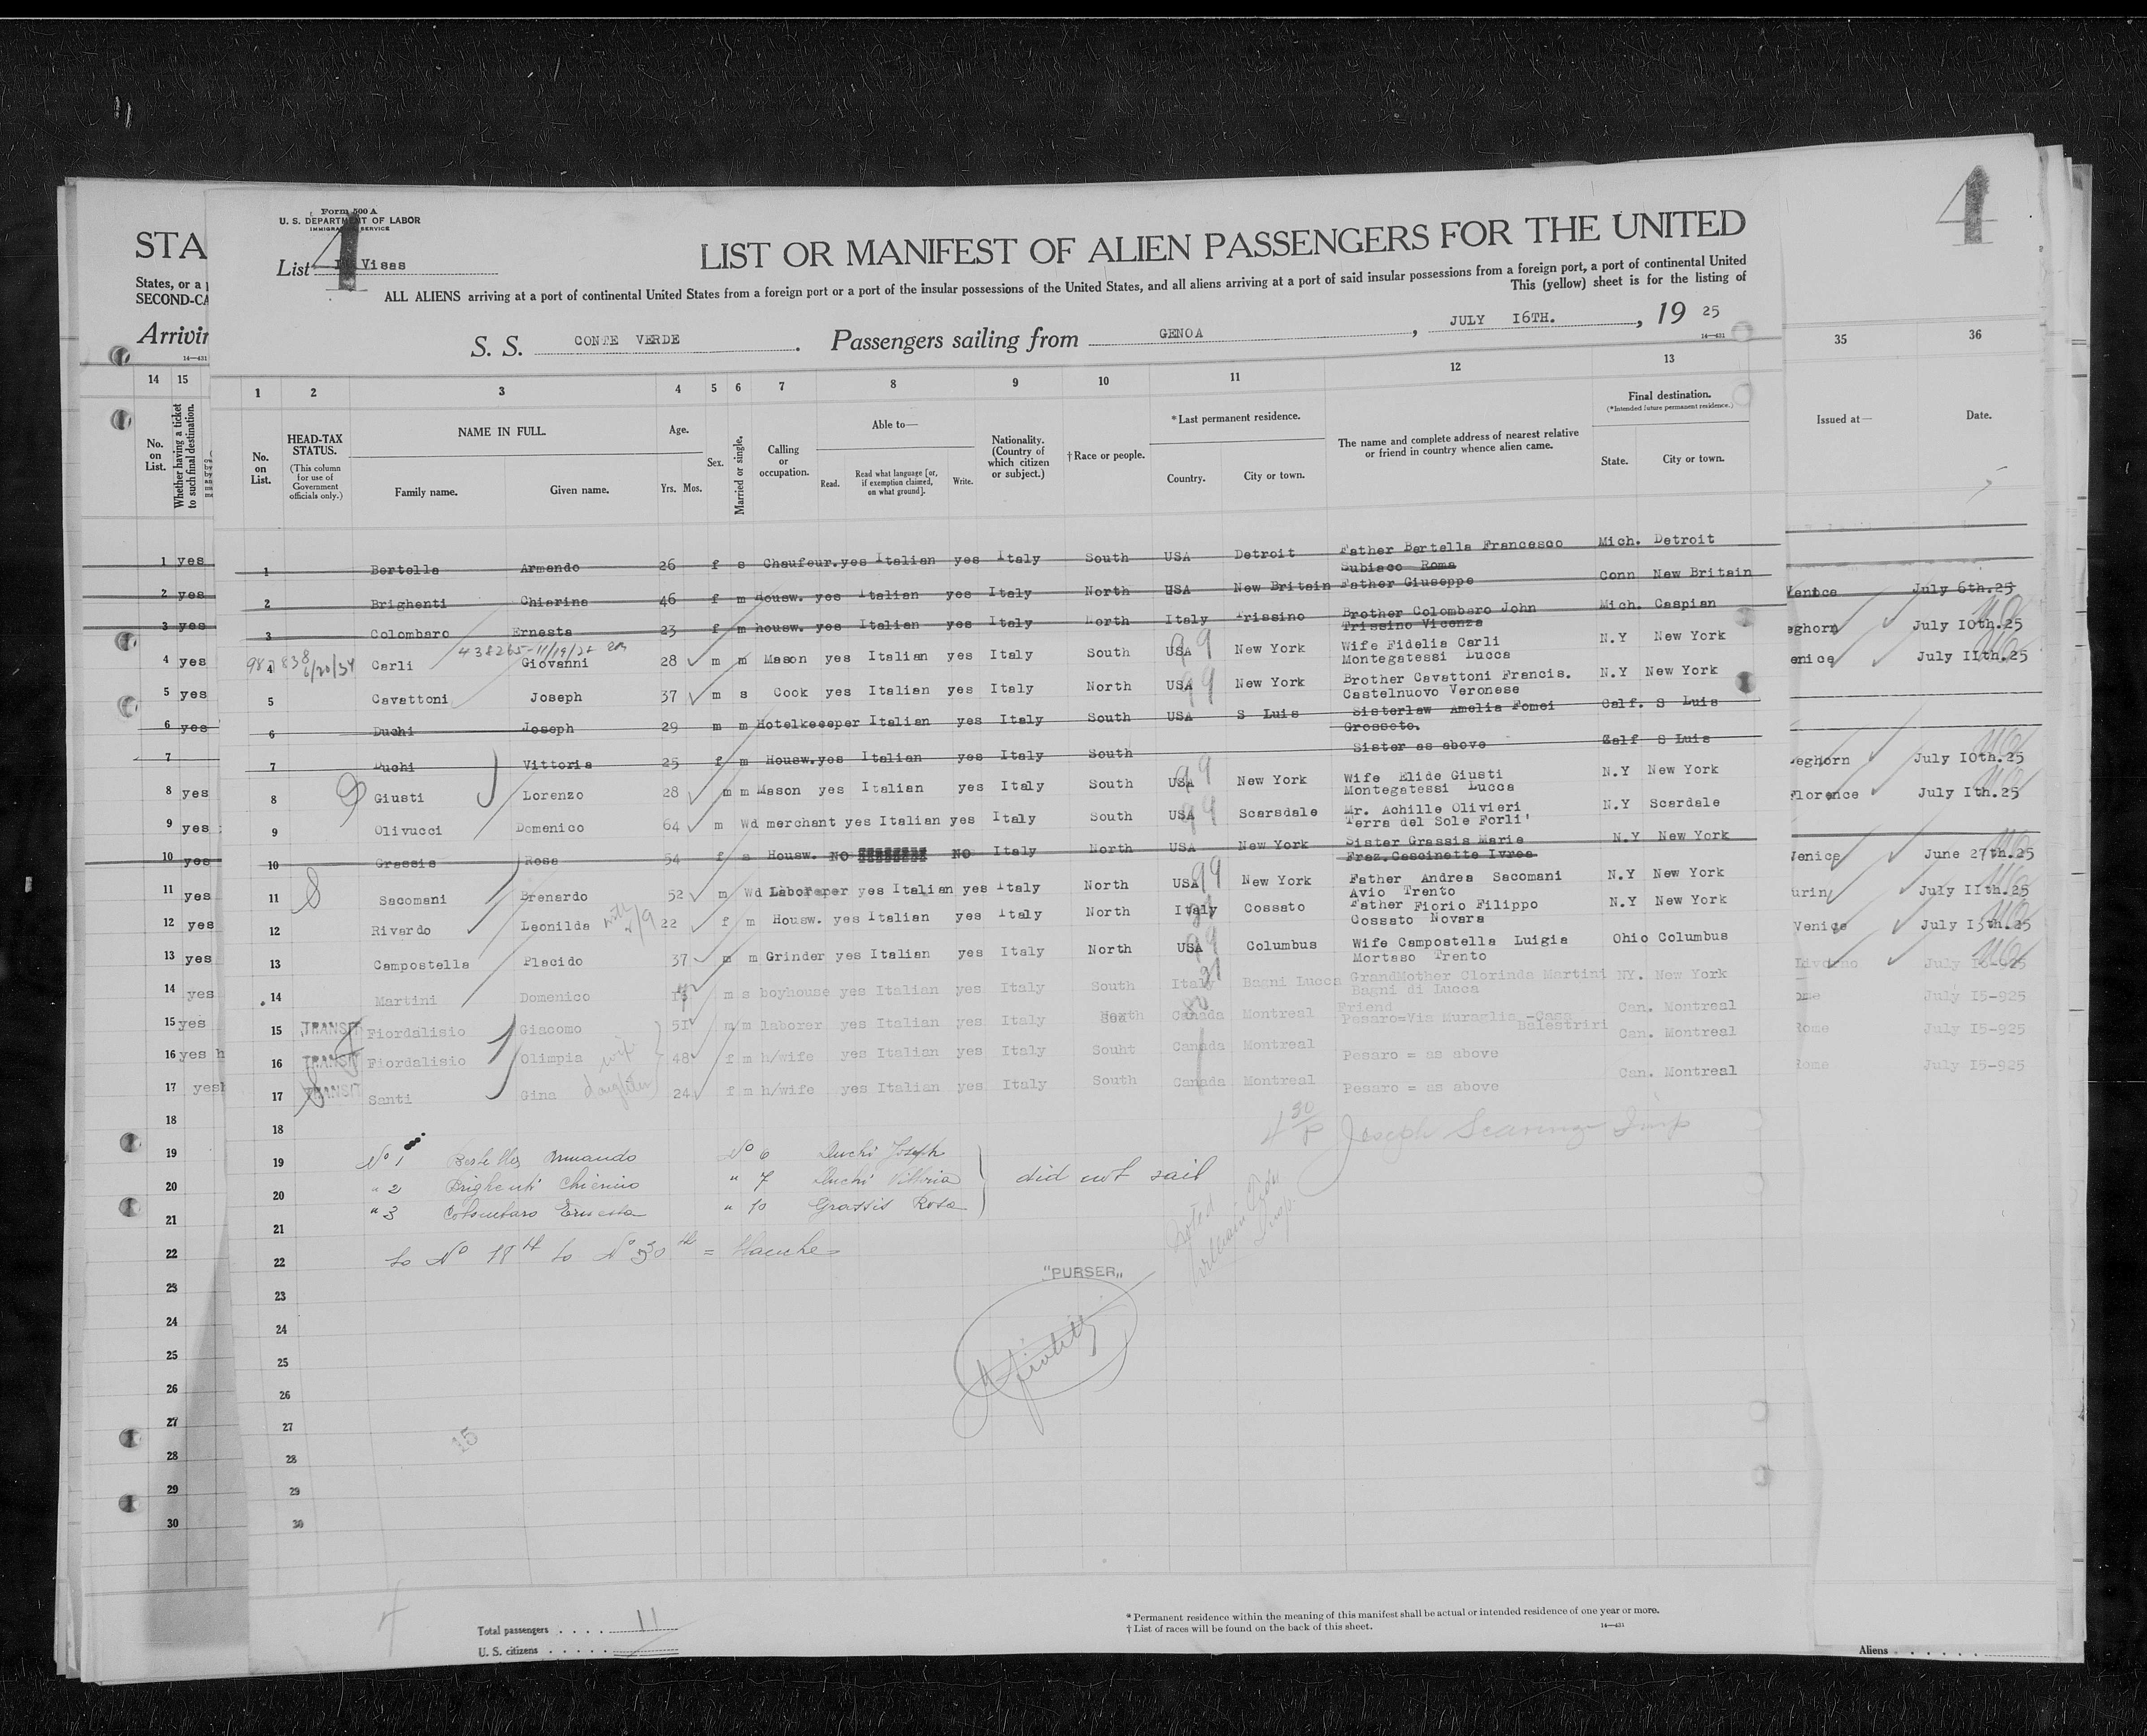 Form 500 A
U. S. DEPARTMENT OF LABOR
IMMIGRATION SERVICE
4
4
STA
List Visas
LIST OR MANIFEST OF ALIEN PASSENGERS FOR THE UNITED
States, or a p
SECOND-CA
ALL ALIENS arriving at a port of continental United States from a foreign port or a port of the insular possessions of the United States, and all aliens arriving at a port of said insular possessions from a foreign port, a port of continental United
This (yellow) sheet is for the listing of
Arrivin
14—431
S. S. CONTE VERDE. Passengers sailing from GENOA, JULY I6TH., 19 25
14—431
14 15 1 2 3 4 5 6 7 8 9 10 11 12 13 35 36
No. on List. Whether having a ticket to such final destination.
No. on List. HEAD-TAX STATUS. (This column for use of Government officials only.) NAME IN FULL. Family name. Given name. Age. Yrs. Mos. Sex. Married or single. Calling or occupation. Able to— Read. Read what language [or, if exemption claimed, on what ground]. Write. Nationality. (Country of which citizen or subject.) † Race or people. * Last permanent residence. Country. City or town. The name and complete address of nearest relative or friend in country whence alien came. Final destination. (* Intended future permanent residence.) State. City or town. Issued at— Date.
1 yes 1 Bertella Armando 26 f s Chaufeur. yes Italian yes Italy South USA Detroit Father Bertella Francesco Mich. Detroit
Subiaco Roma
2 yes 2 Brighenti Chiarina 46 f m Housw. yes Italian yes Italy North USA New Britain Father Giuseppe Conn New Britain Venice July 6th.25
3 yes 3 Colombaro Ernesta 23 f m housw. yes Italian yes Italy North Italy Trissino Brother Colombaro John Mich. Caspian eghorn July IOth.25
Trissino Vicenza
438265-11/19/28
4 yes 4 Carli Giovanni 28 m m Mason yes Italian yes Italy South USA 99 New York Wife Fidelia Carli N.Y New York enice July IIth.25
Montegatessi Lucca
5 yes 5 Cavattoni Joseph 37 m s Cook yes Italian yes Italy North USA 99 New York Brother Cavattoni Francis. N.Y New York
Castelnuovo Veronese
6 yes 6 Duchi Joseph 29 m m Hotelkeeeper Italian yes Italy South USA S Luis Sisterlaw Amelia Fomei Calf. S Luis
Grosseto.
7 7 Duchi Vittoria 25 f m Housw. yes Italian yes Italy South Sister as above Calf S Luis eghorn July IOth.25
8 yes 8 Giusti Lorenzo 28 m m Mason yes Italian yes Italy South USA 99 New York Wife Elide Giusti N.Y New York Florence July Ith.25
Montegatessi Lucca
9 yes 9 Olivucci Domenico 64 m Wd merchant yes Italian yes Italy South USA 99 Scarsdale Mr. Achille Olivieri N.Y Scardale
Terra del Sole Forli'
10 yes 10 Grassis Rosa 54 f s Housw. NO NO Italy North USA New York Sister Grassis Maria N.Y New York Venice June 27th.25
Frez.Cascinette Ivrea
11 yes 11 Sacomani Brenardo 52 m Wd Laborerer yes Italian yes Italy North USA 99 New York Father Andrea Sacomani N.Y New York urin July IIth.25
Avio Trento
12 yes 12 Rivardo Leonilda 22 f m Housw. yes Italian yes Italy North Italy Cossato Father Fiorio Filippo N.Y New York Venice July I3th.25
Cossato Novara
13 yes 13 Campostella Placido 37 m m Grinder yes Italian yes Italy North USA 99 Columbus Wife Campostella Luigia Ohio Columbus Livorno July 16-925
Mortaso Trento
14 yes 14 Martini Domenico m s boyhouse yes Italian yes Italy South Italy Bagni Lucca GrandMother Clorinda Martini NY. New York ome July I5-925
Bagni di Lucca
15 yes 15 TRANSIT Fiordalisio Giacomo 51 m m laborer yes Italian yes Italy Canada Montreal Friend Can. Montreal Rome July I5-925
Pesaro=Via Muraglia -Casa Balestriri
16 yes h 16 TRANSIT Fiordalisio Olimpia wife 48 f m h/wife yes Italian yes Italy Souht Canada Montreal Pesaro = as above Can. Montreal Rome July I5-925
17 yes 17 TRANSIT Santi Gina daughter 24 f m h/wife yes Italian yes Italy South Canada Montreal Pesaro = as above Can. Montreal
18 18
19 19 No 1 Bertella Armando No 6 Duchi Joseph
20 20 " 2 Brighenti Chiarina " 7 Duchi Vittoria did not sail
21 21 " 3 Colombaro Ernesta " 10 Grassis Rosa
22 22 to No 18th to No 30th = blanche
Noted
"PURSER„
23 23
24 24
25 25
26 26
27 27
15
28 28
29 29
30 30
Total passengers 11
U. S. citizens
* Permanent residence within the meaning of this manifest shall be actual or intended residence of one year or more.
† List of races will be found on the back of this sheet.
14—431
Aliens